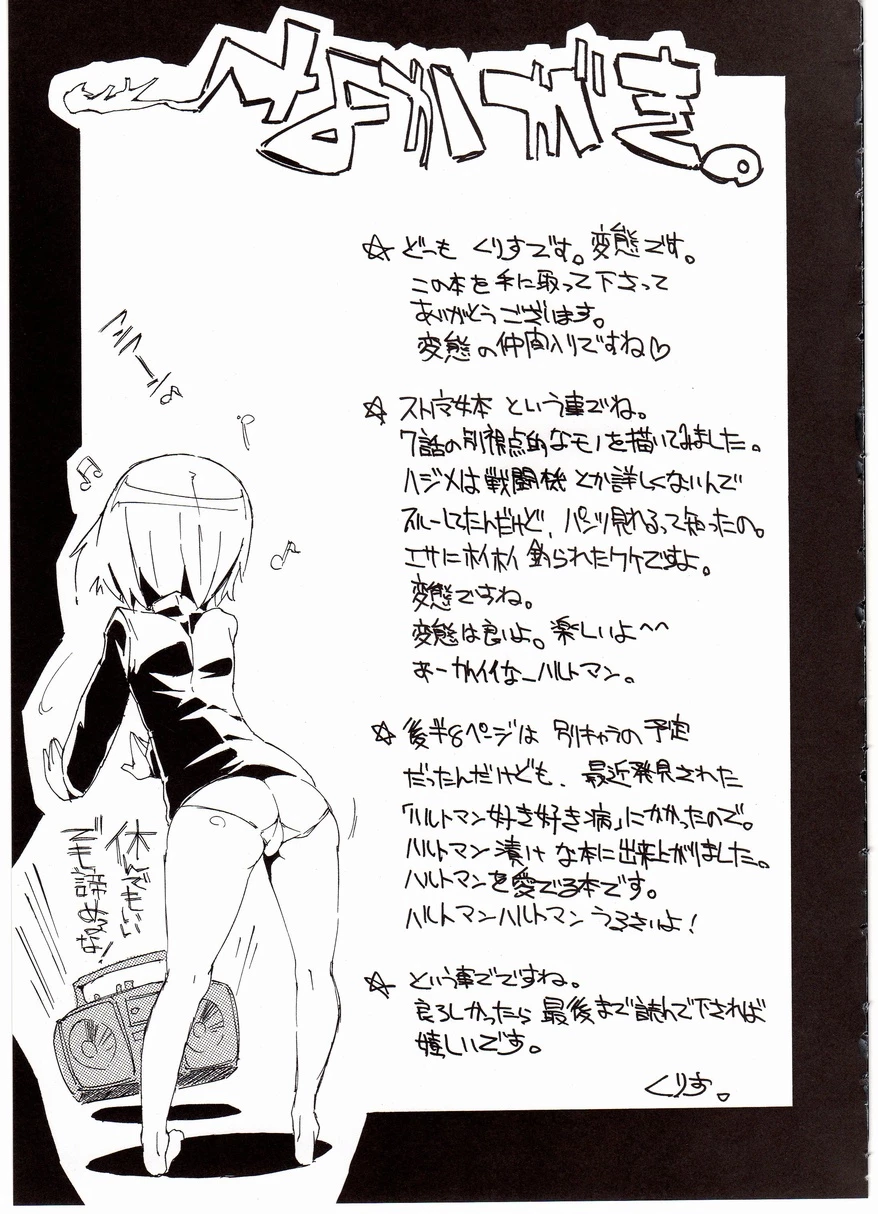 なかがき。
☆ どーも くりすです。変態です。
この本を手に取って下さって
ありがとうございます。
変態の仲間入りですね♡
☆ ストパン本 という事でね。
7話の別視点的なモノを描いてみました。
ハジメは戦闘機とか詳しくないんで
スルーしてたんだけど、パンツ見れるって知ったの。
エサにホイホイ釣られたワケですよ。
変態ですね。
変態は良いよ。楽しいよ～～
あーかわイイなーハルトマン。
☆ 後半8ページは 別キャラの予定
だったんだけども、最近発見された
「ハルトマン好き好き病」にかかったので。
ハルトマン漬けな本に出来上がりました。
ハルトマンを愛でる本です。
ハルトマンハルトマンうるさいよ！
☆ という事でですね。
良ろしかったら最後まで読んで下されば
嬉しいです。
くりす。
休んでもいい
でも諦めるな！